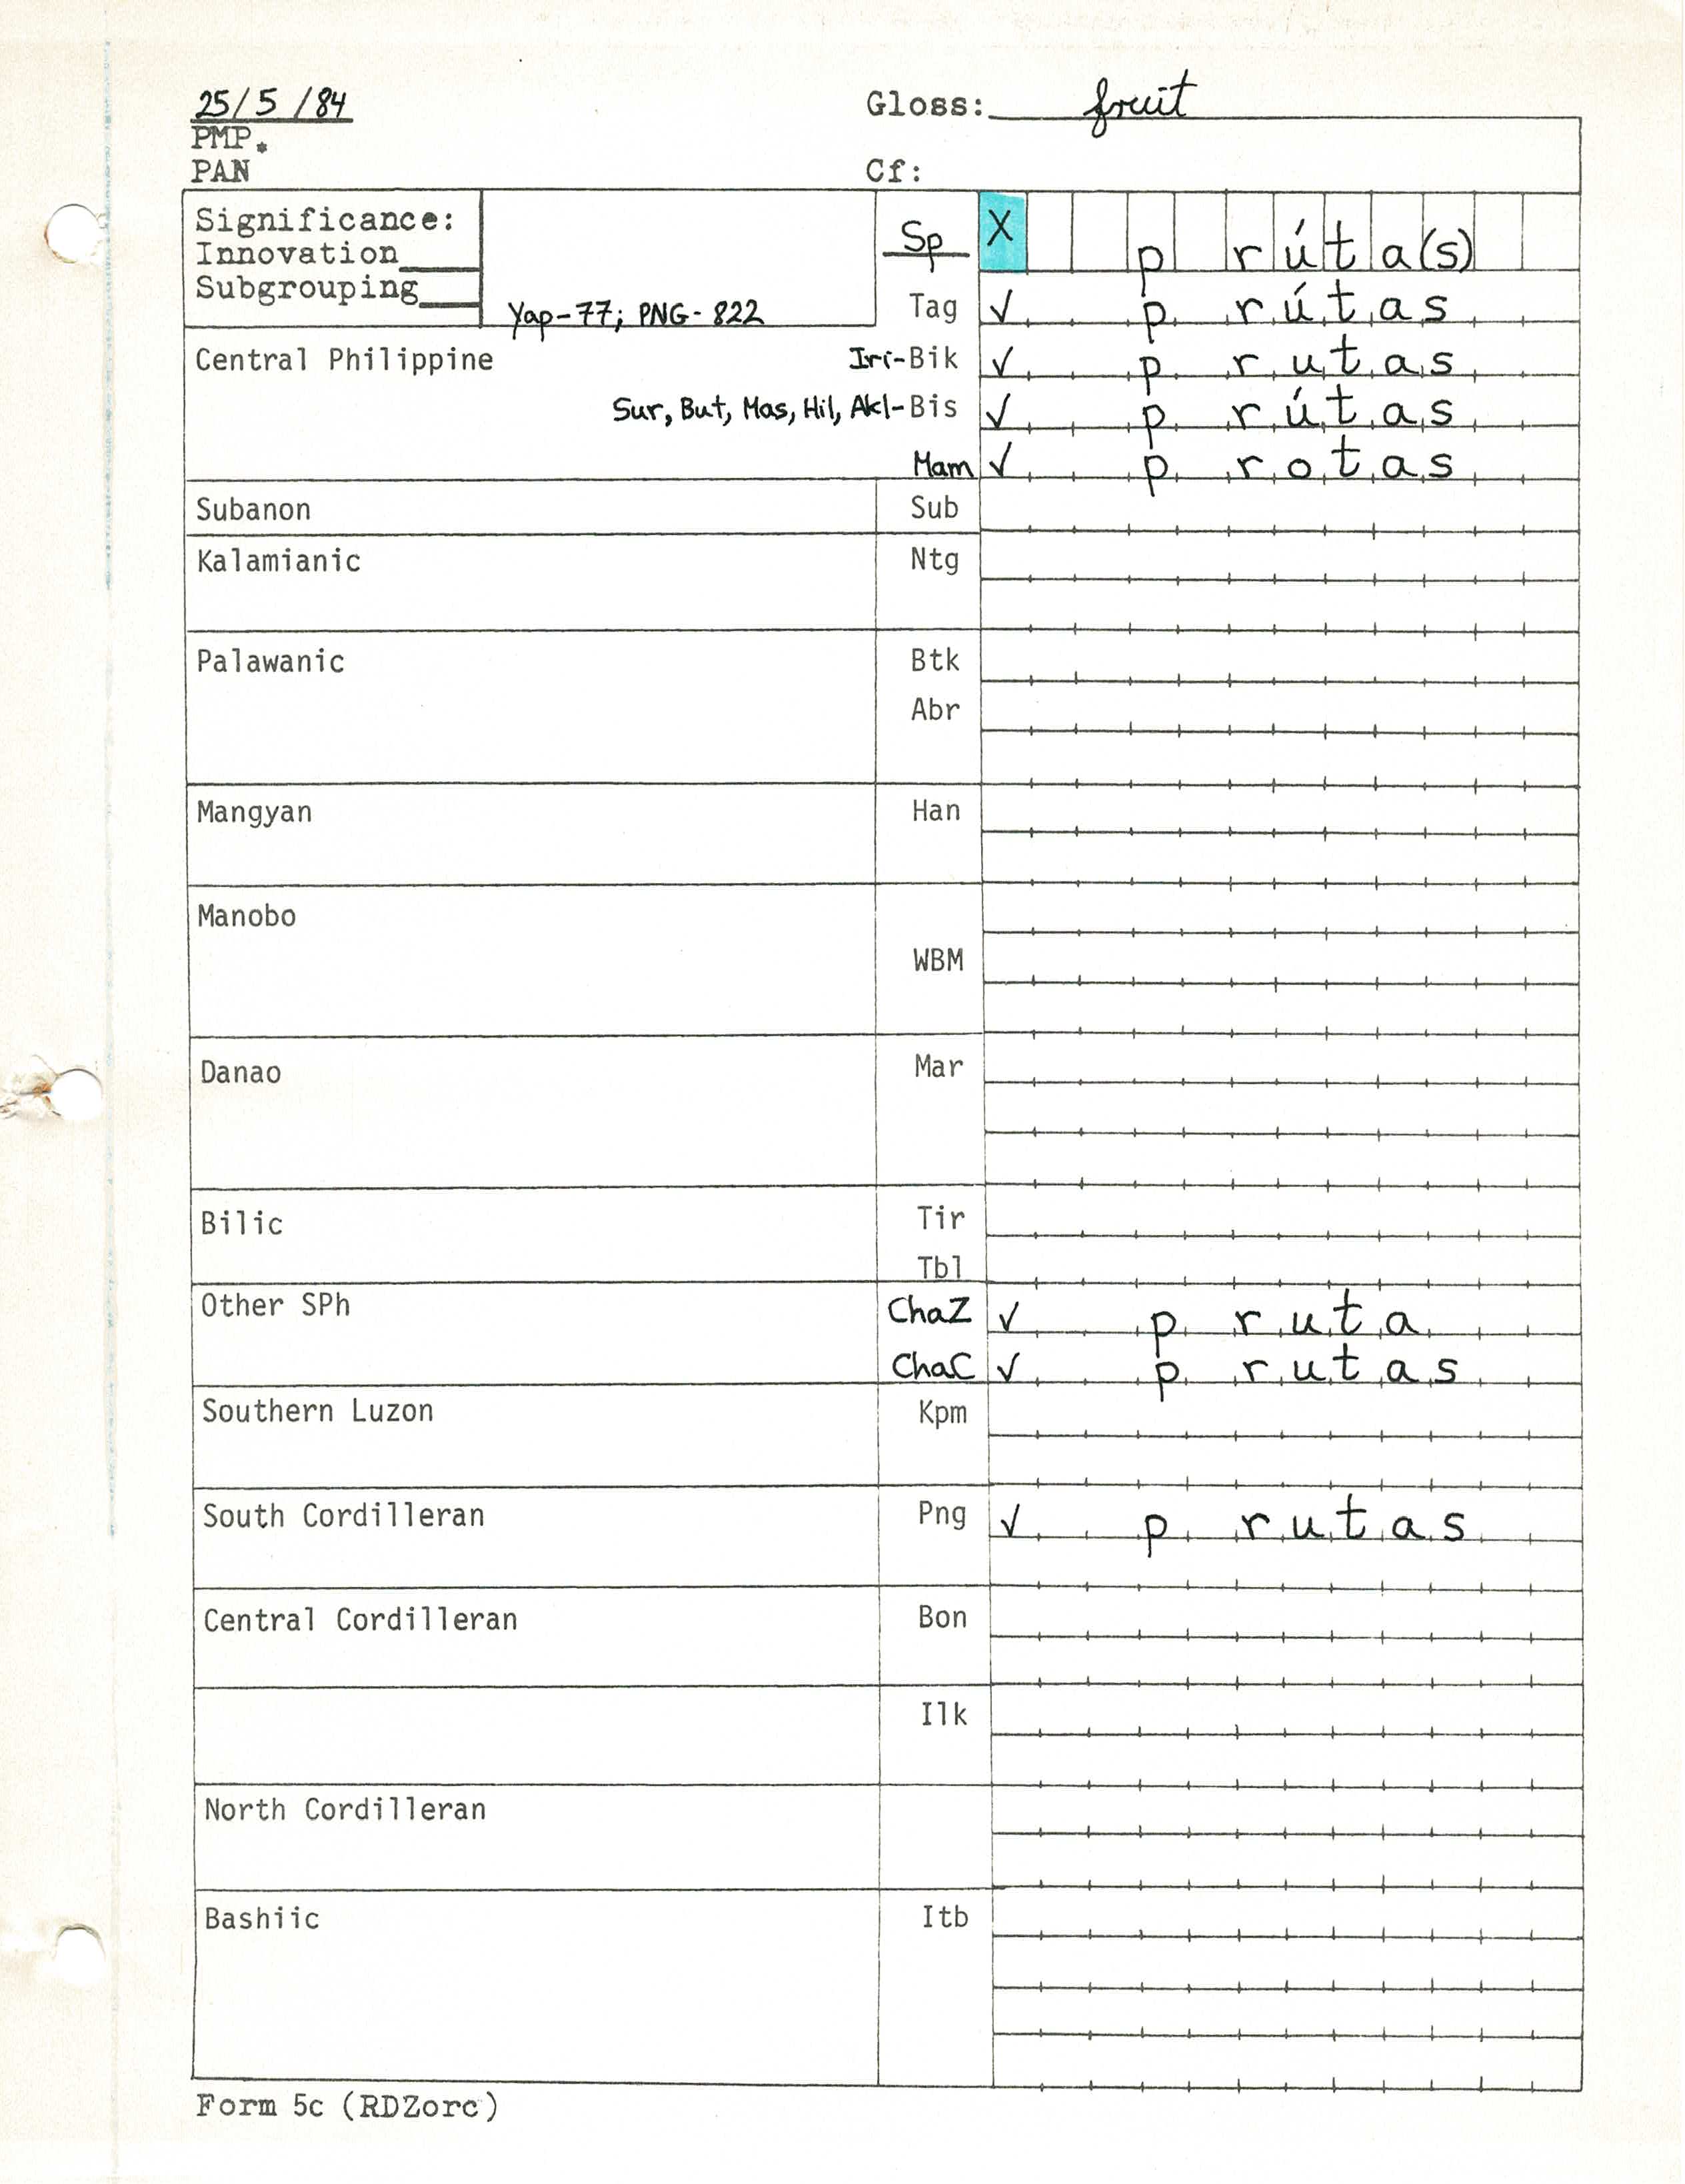 25/5/84 Gloss: fruit
PMP*
PAN Cf:
Significance:
Innovation
Subgrouping
Yap-77; PNG-822
Sp X p rúta(s)
Tag ✓ p rútas
Central Philippine Iri-Bik ✓ p rutas
Sur, But, Mas, Hil, Akl-Bis ✓ p rútas
Mam ✓ p rotas
Subanon Sub
Kalamianic Ntg
Palawanic Btk
Abr
Mangyan Han
Manobo
WBM
Danao Mar
Bilic Tir
Tbl
Other SPh ChaZ ✓ p ruta
ChaC ✓ p rutas
Southern Luzon Kpm
South Cordilleran Png ✓ p rutas
Central Cordilleran Bon
Ilk
North Cordilleran
Bashiic Itb
Form 5c (RDZorc)